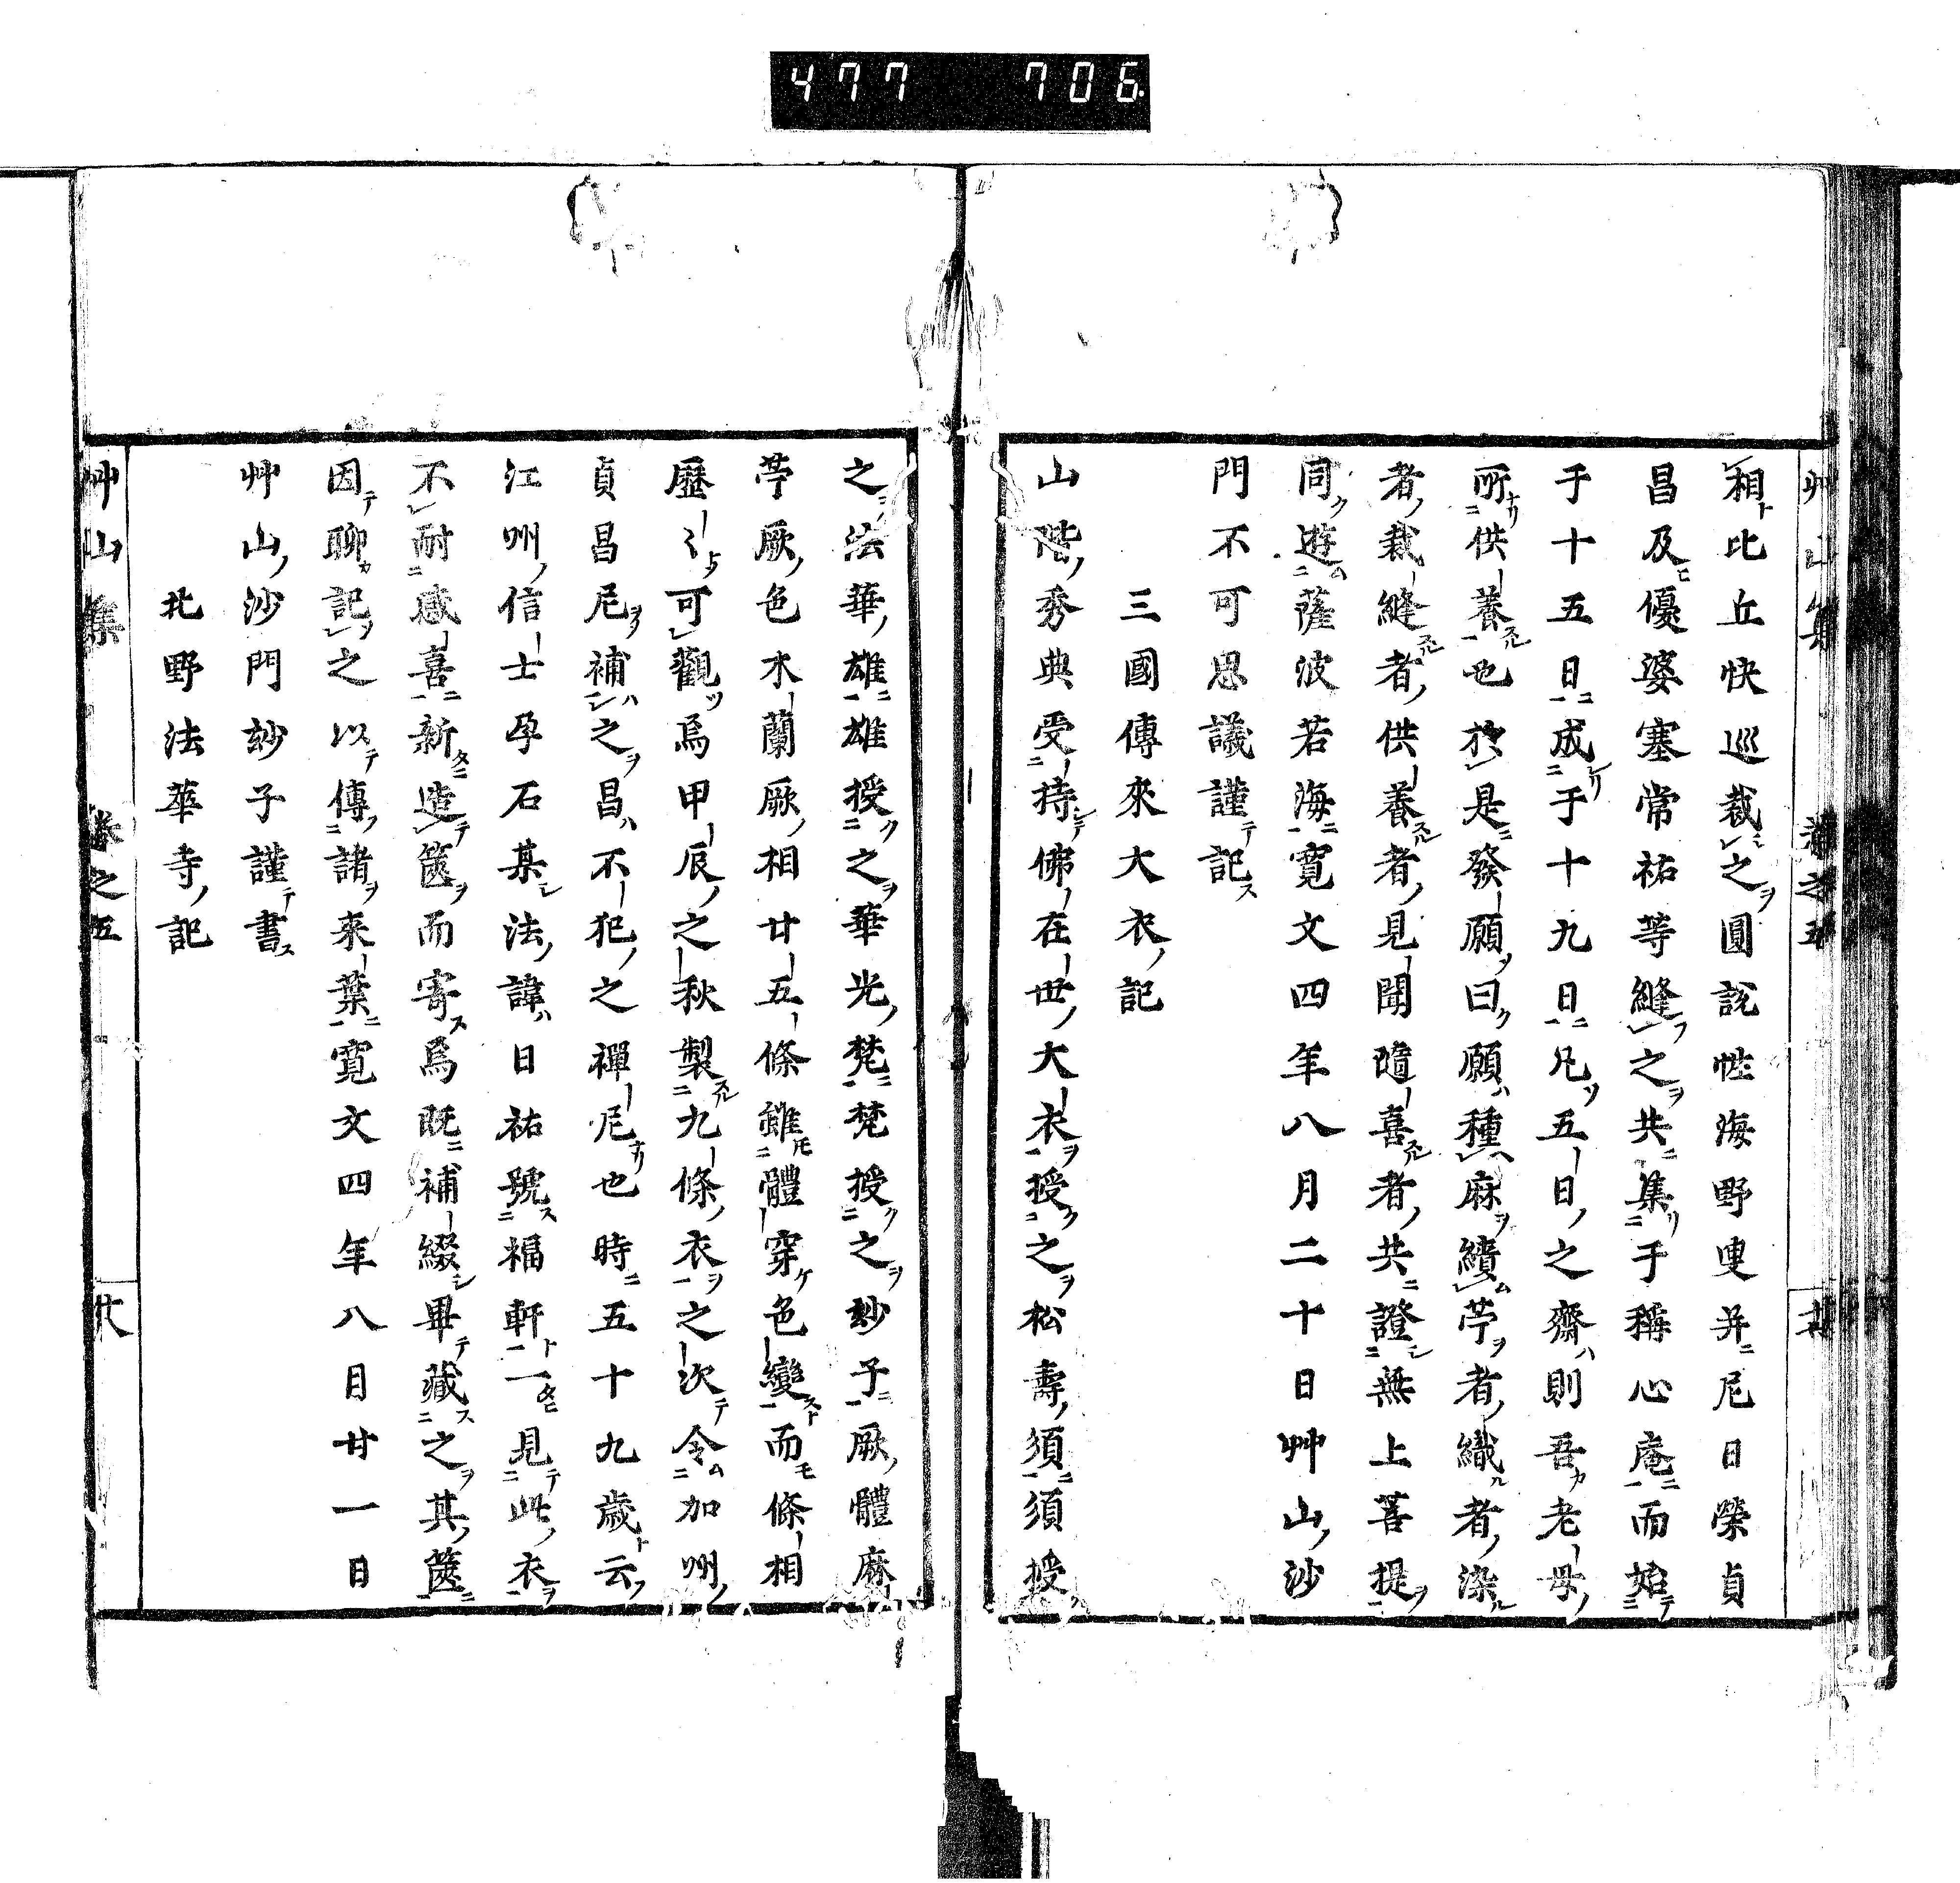 477 706
相比丘快巡裁之圓說性海野叟并尼日榮貞
昌及優婆塞常祐等縫之共集于稱心庵而始
于十五日成于十九日凡五日之齋則吾老母
所供養也於是發願曰願種麻績苧者織者染
者裁縫者供養者見聞隨喜者共證無上菩提
同遊薩波若海寬文四年八月二十日艸山沙
門不可思議謹記
三國傳來大衣記
山階秀典受持佛在世大衣授之松壽須須授
之法華雄雄授之華光梵梵授之玅子厥體麻
苧厥色水蘭厥相廿五條雖體穿色變而條相
歷〻可觀焉甲辰之秋製九條衣之次令加州
貞昌尼補之昌不犯之禪尼也時五十九歲云
江州信士孕石某法諱日祐號福軒一見此衣
不耐感喜新造篋而寄焉既補綴畢藏之其篋
因聊記之以傳諸來葉寬文四年八月廿一日
艸山沙門玅子謹書
北野法華寺記
艸山集 卷之五 廿八